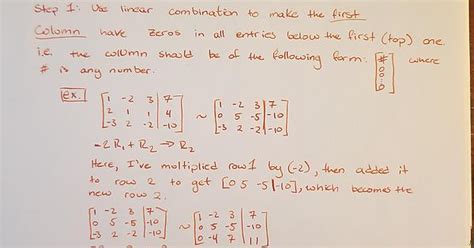 Step 1: Use linear combination to make the first
Column have zeros in all entries below the first (top) one.
i.e. the column should be of the following form: [# 0 0 : 0] where
# is any number.
ex. [1 -2 3 | 7] ~ [1 -2 3 | 7]
[2 1 1 | 4] [0 5 -5 | -10]
[-3 2 -2 | -10] [-3 2 -2 | -10]
-2R1 + R2 → R2
Here, I've multiplied row 1 by (-2), then added it
to row 2 to get [0 5 -5 | -10], which becomes the
new row 2.
[1 -2 3 | 7] ~ [1 -2 3 | 7]
[0 5 -5 | -10] [0 5 -5 | -10]
[-3 2 -2 | -10] [0 -4 7 | 11]